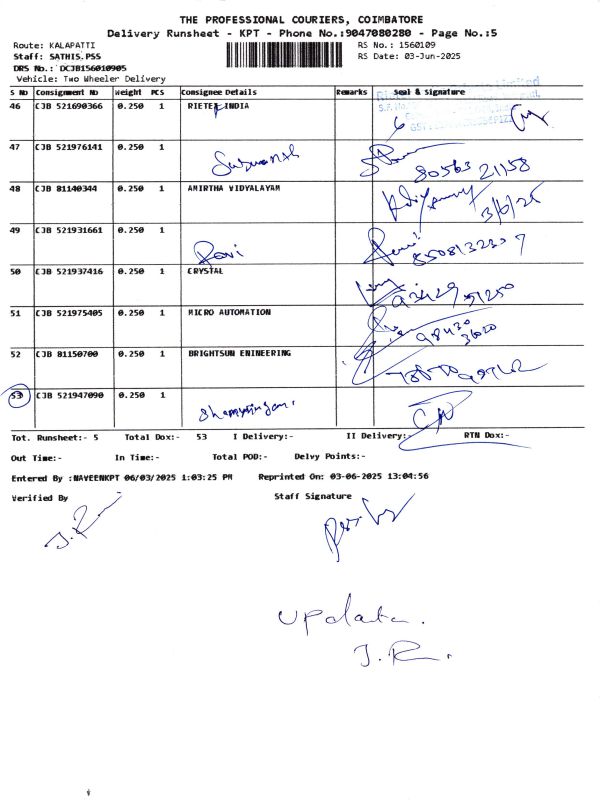 THE PROFESSIONAL COURIERS, COIMBATORE
Delivery Runsheet - KPT - Phone No.:9047080280 - Page No.:5
Route: KALAPATTI RS No.: 1560109
Staff: SATHIS.PSS RS Date: 03-Jun-2025
DRS No.: DCJB156010905
Vehicle: Two Wheeler Delivery
S No Consignment No Weight PCS Consignee Details Remarks Seal & Signature
46 CJB 521690366 0.250 1 RIETER INDIA
47 CJB 521976141 0.250 1
80563 21158
48 CJB 81140344 0.250 1 AMIRTHA VIDYALAYAM
3/6/25
49 CJB 521931661 0.250 1 Ravi
50 CJB 521937416 0.250 1 CRYSTAL
51 CJB 521975405 0.250 1 MICRO AUTOMATION
98430
52 CJB 81150700 0.250 1 BRIGHTSUN ENINEERING
53 CJB 521947090 0.250 1
Tot. Runsheet:- 5 Total Dox:- 53 I Delivery:- II Delivery:- RTN Dox:-
Out Time:- In Time:- Total POD:- Delvy Points:-
Entered By :NAVEENKPT 06/03/2025 1:03:25 PM Reprinted On: 03-06-2025 13:04:56
Verified By Staff Signature